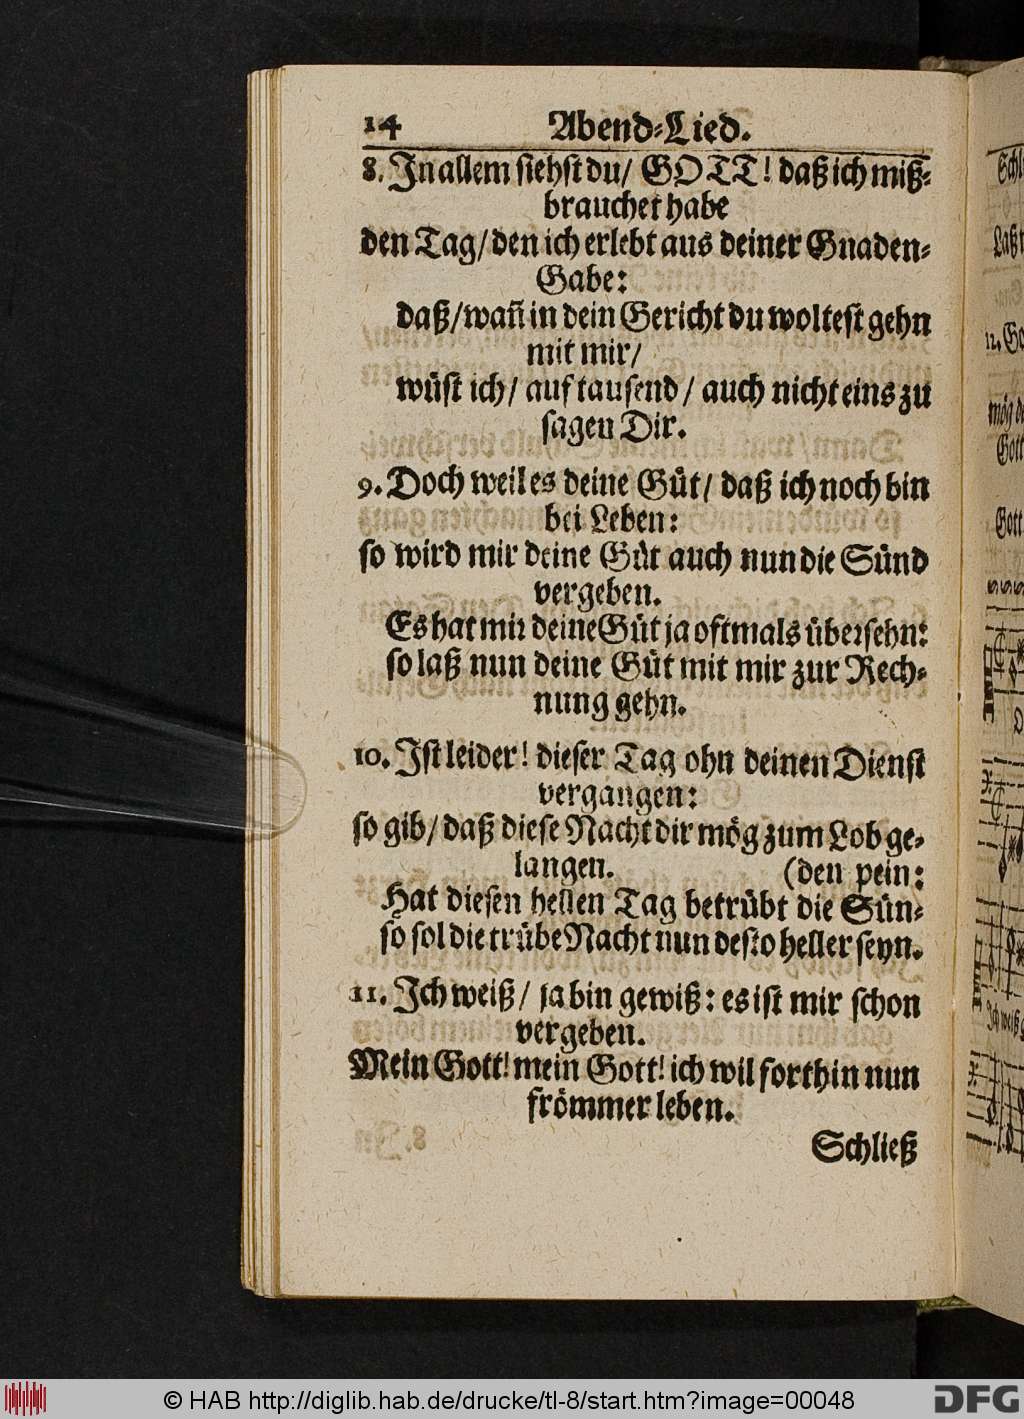 14 Abend-Lied.
8. In allem siehst du/ GOTT! daß ich miß-
brauchet habe
den Tag/ den ich erlebt aus deiner Gnaden-
Gabe:
daß/ wañ in dein Gericht du woltest gehn
mit mir/
wüst ich/ auf tausend/ auch nicht eins zu
sagen Dir.
9. Doch weil es deine Güt/ daß ich noch bin
bei Leben:
so wird mir deine Güt auch nun die Sünd
vergeben.
Es hat mir deine Güt ja oftmals übersehn:
so laß nun deine Güt mit mir zur Rech-
nung gehn.
10. Ist leider! dieser Tag ohn deinen Dienst
vergangen:
so gib/ daß diese Nacht dir mög zum Lob ge-
langen. (den pein:
Hat diesen hellen Tag betrübt die Sün-
so sol die trübe Nacht nun desto heller seyn.
11. Ich weiß/ ja bin gewiß: es ist mir schon
vergeben.
Mein Gott! mein Gott! ich wil forthin nun
frömmer leben.
Schließ
Schl
Laß
12. Go
mög d
Gott
Gott
Ich weiß
© HAB http://diglib.hab.de/drucke/tl-8/start.htm?image=00048
DFG